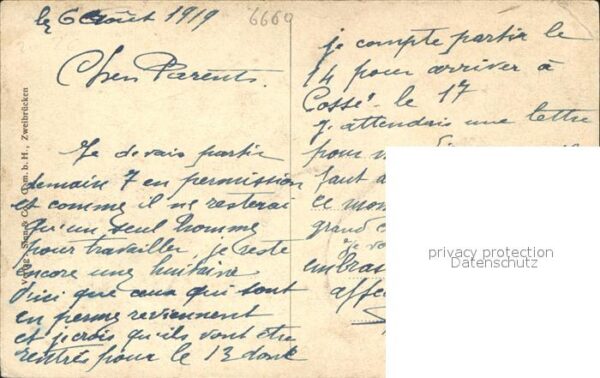 le 6 Août 1919
6660
Chers Parents.
Je devais partir
demain 7 en permission
et comme il ne resterai
qu'un seul homme
pour travailler je reste
encore une huitaine
d'ici que ceux qui sont
en perme reviennent
et je crois qu'ils vont être
rentrés pour le 13 donc
je compte partir le
14 pour arriver à
Cossé le 17
J'attendais une lettre
pour
faut a
ce mo
grand
je vo
embras
affec
G.m.b.H., Zweibrücken
privacy protection
Datenschutz